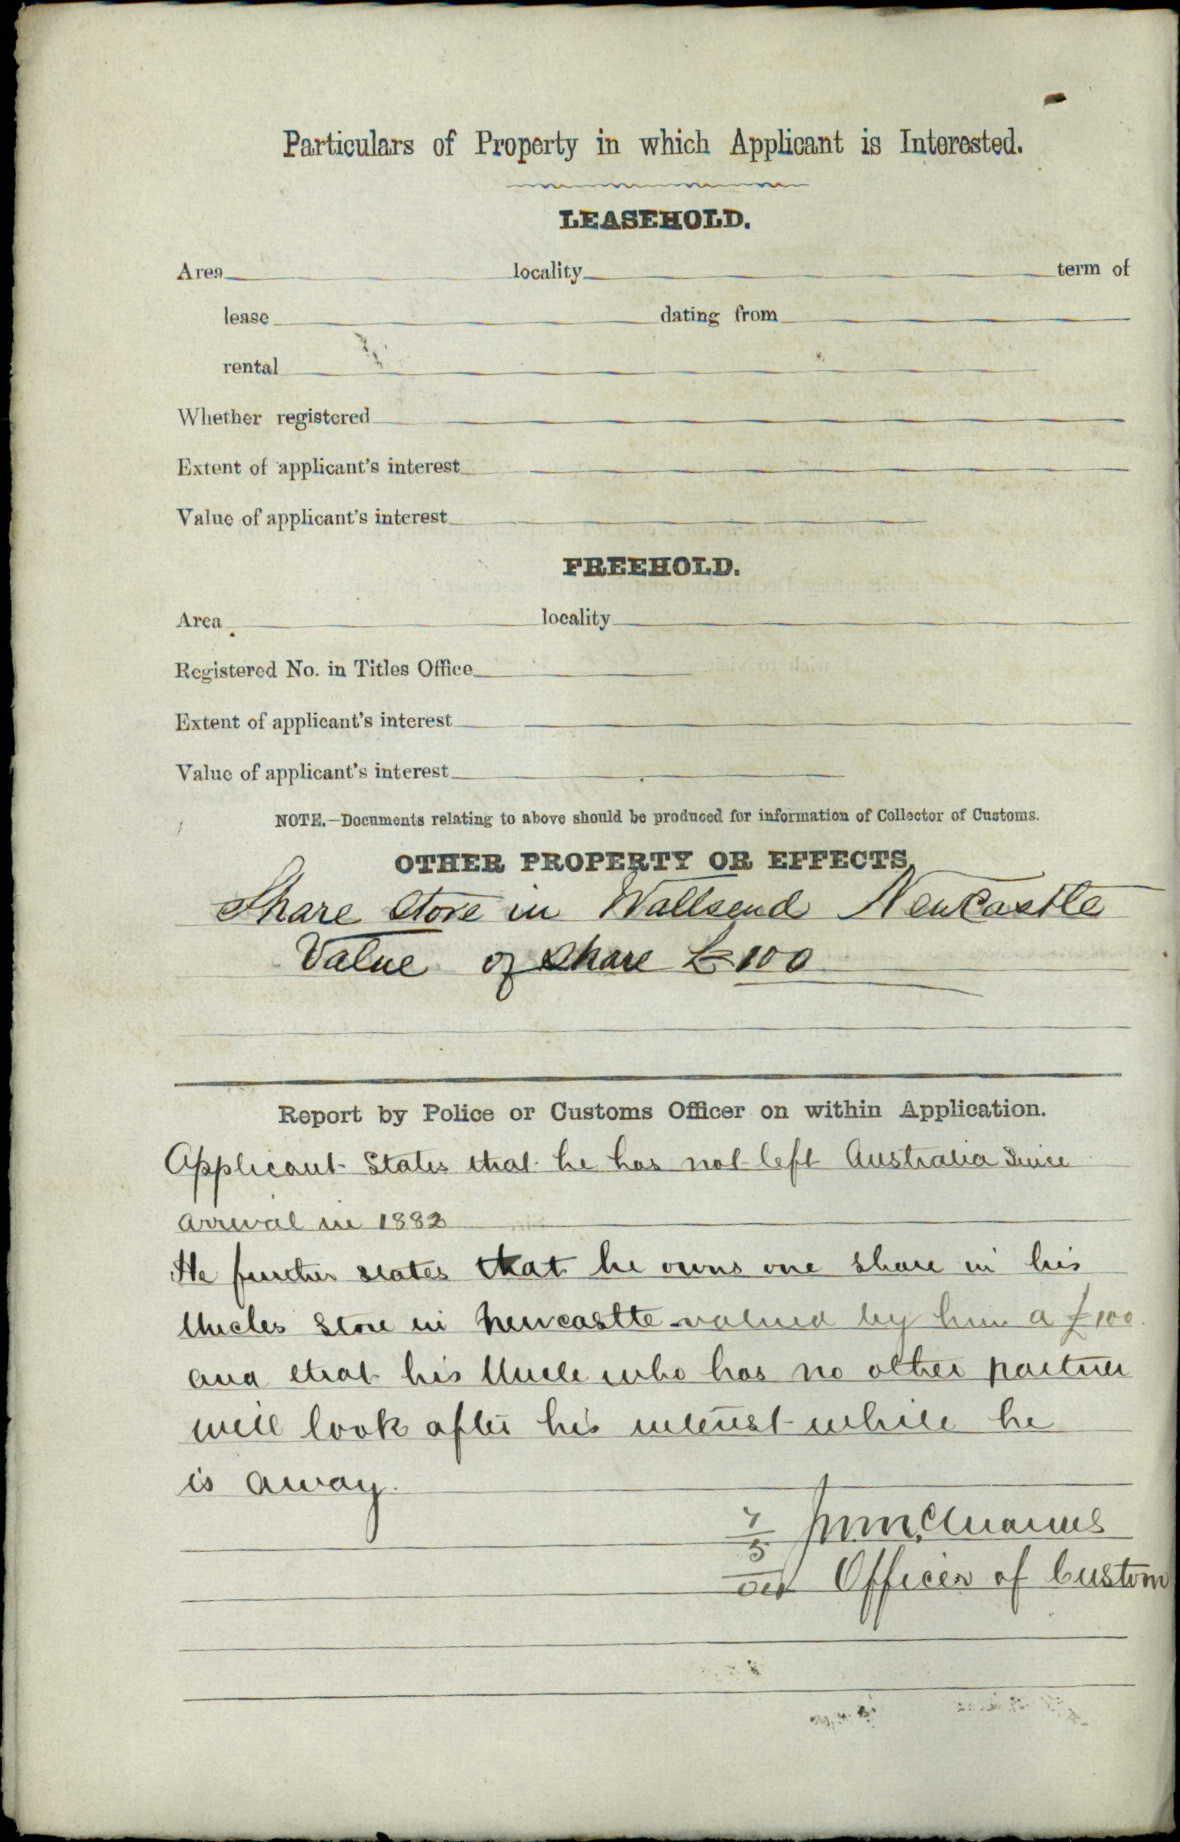 Particulars of Property in which Applicant is Interested.
LEASEHOLD.
Area locality term of
lease dating from
rental
Whether registered
Extent of applicant's interest
Value of applicant's interest
FREEHOLD.
Area locality
Registered No. in Titles Office
Extent of applicant's interest
Value of applicant's interest
NOTE.—Documents relating to above should be produced for information of Collector of Customs.
OTHER PROPERTY OR EFFECTS.
Share store in Wallsend Newcastle
Value of share £100
Report by Police or Customs Officer on within Application.
Applicant States that he has not left Australia Since
arrival in 1882
He further states that he owns one share in his
Uncles Store in Newcastle valued by him a £100.
and that his Uncle who has no other partner
will look after his interest while he
is away.
7
5
Officer of Custom